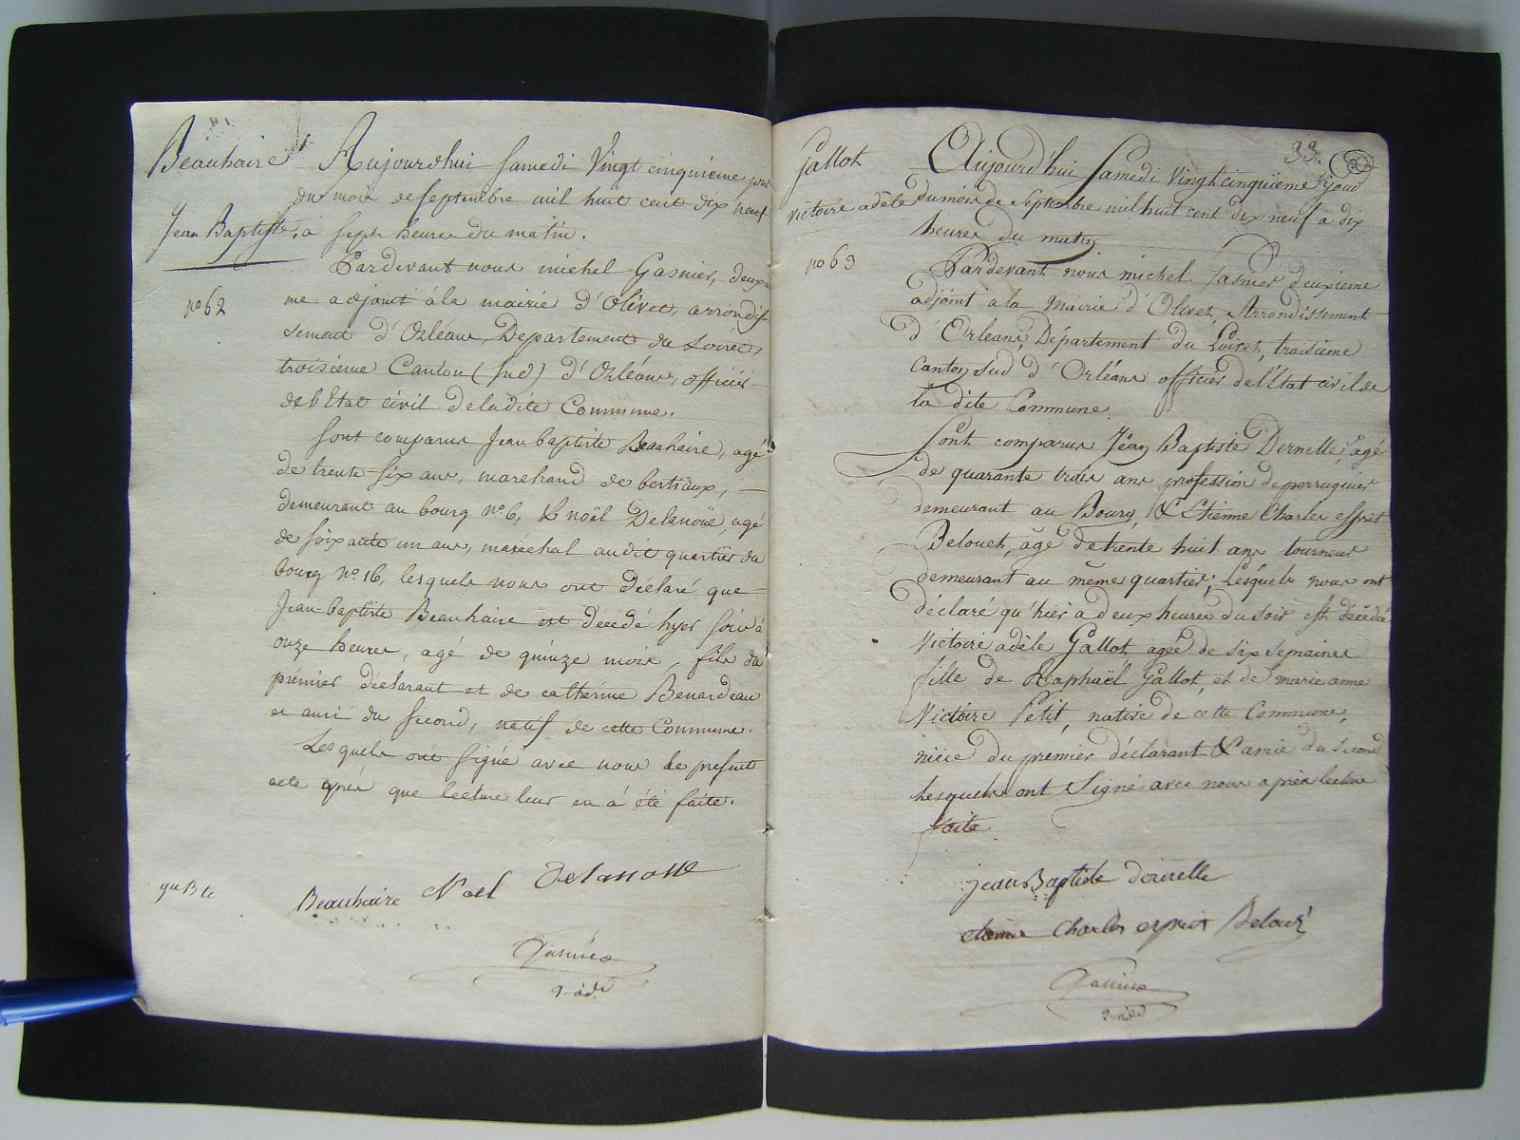 Beauhaire
Jean Baptiste.
no 62
Aujourdhui Samedi Vingt cinquieme jour
du mois de Septembre mil huit cent dix neuf
à sept heures du matin.
Pardevant nous michel Gasnier, deuxie
me adjoint à la mairie d'Olivet, arrondis
sement d'Orléans, Departement du Loiret,
troisieme Canton (sud) d'Orléans, officier
de l'Etat civil de la dite Commune.
Sont comparus Jean baptiste Beauhaire, agé
de trente six ans, marchand de bestiaux,
demeurant au bourg no 6, & noël Delanoüe, agé
de soixante un ans, maréchal audit quartier du
bourg no 16, lesquels nous ont déclaré que
Jean-baptiste Beauhaire est décédé hyer soir à
onze heures, agé de quinze mois, fils du
premier déclarant et de catherine Benardeau
et ami du second, natif de cette Commune.
Lesquels ont signé avec nous le present
acte après que lecture leur en à été faite.
Beauhaire Noel Delanoue
Gasnier
2. adt
33.
Gallot
victoire adèle
no 63
Aujourd'hui Samedi Vingt cinquieme jour
du mois de Septembre mil huit cent dix neuf à dix
heures du matin
Pardevant nous michel Gasnier deuxieme
adjoint à la Mairie d'Olivet, Arrondissement
d'Orleans Département du Loiret, troisieme
Canton Sud d'Orléans officier de l'État civil de
la dite Commune.
Sont comparus Jean Baptiste Dernelle, agé
de quarante trois ans profession de perruquier
demeurant au Bourg, & Etienne Charles esprit
Belouet, âgé de trente huit ans tourneur
demeurant au même quartier; Lesquels nous ont
déclaré qu'hier à deux heures du soir est décédée
Victoire adèle Gallot agée de six semaines
fille de Raphaël Gallot, et de marie anne
Victoire Petit, native de cette Commune,
nièce du premier déclarant & amie du second
Lesquels ont Signé avec nous après lecture
faite
jean Baptiste
Charles esprit
Gasnier